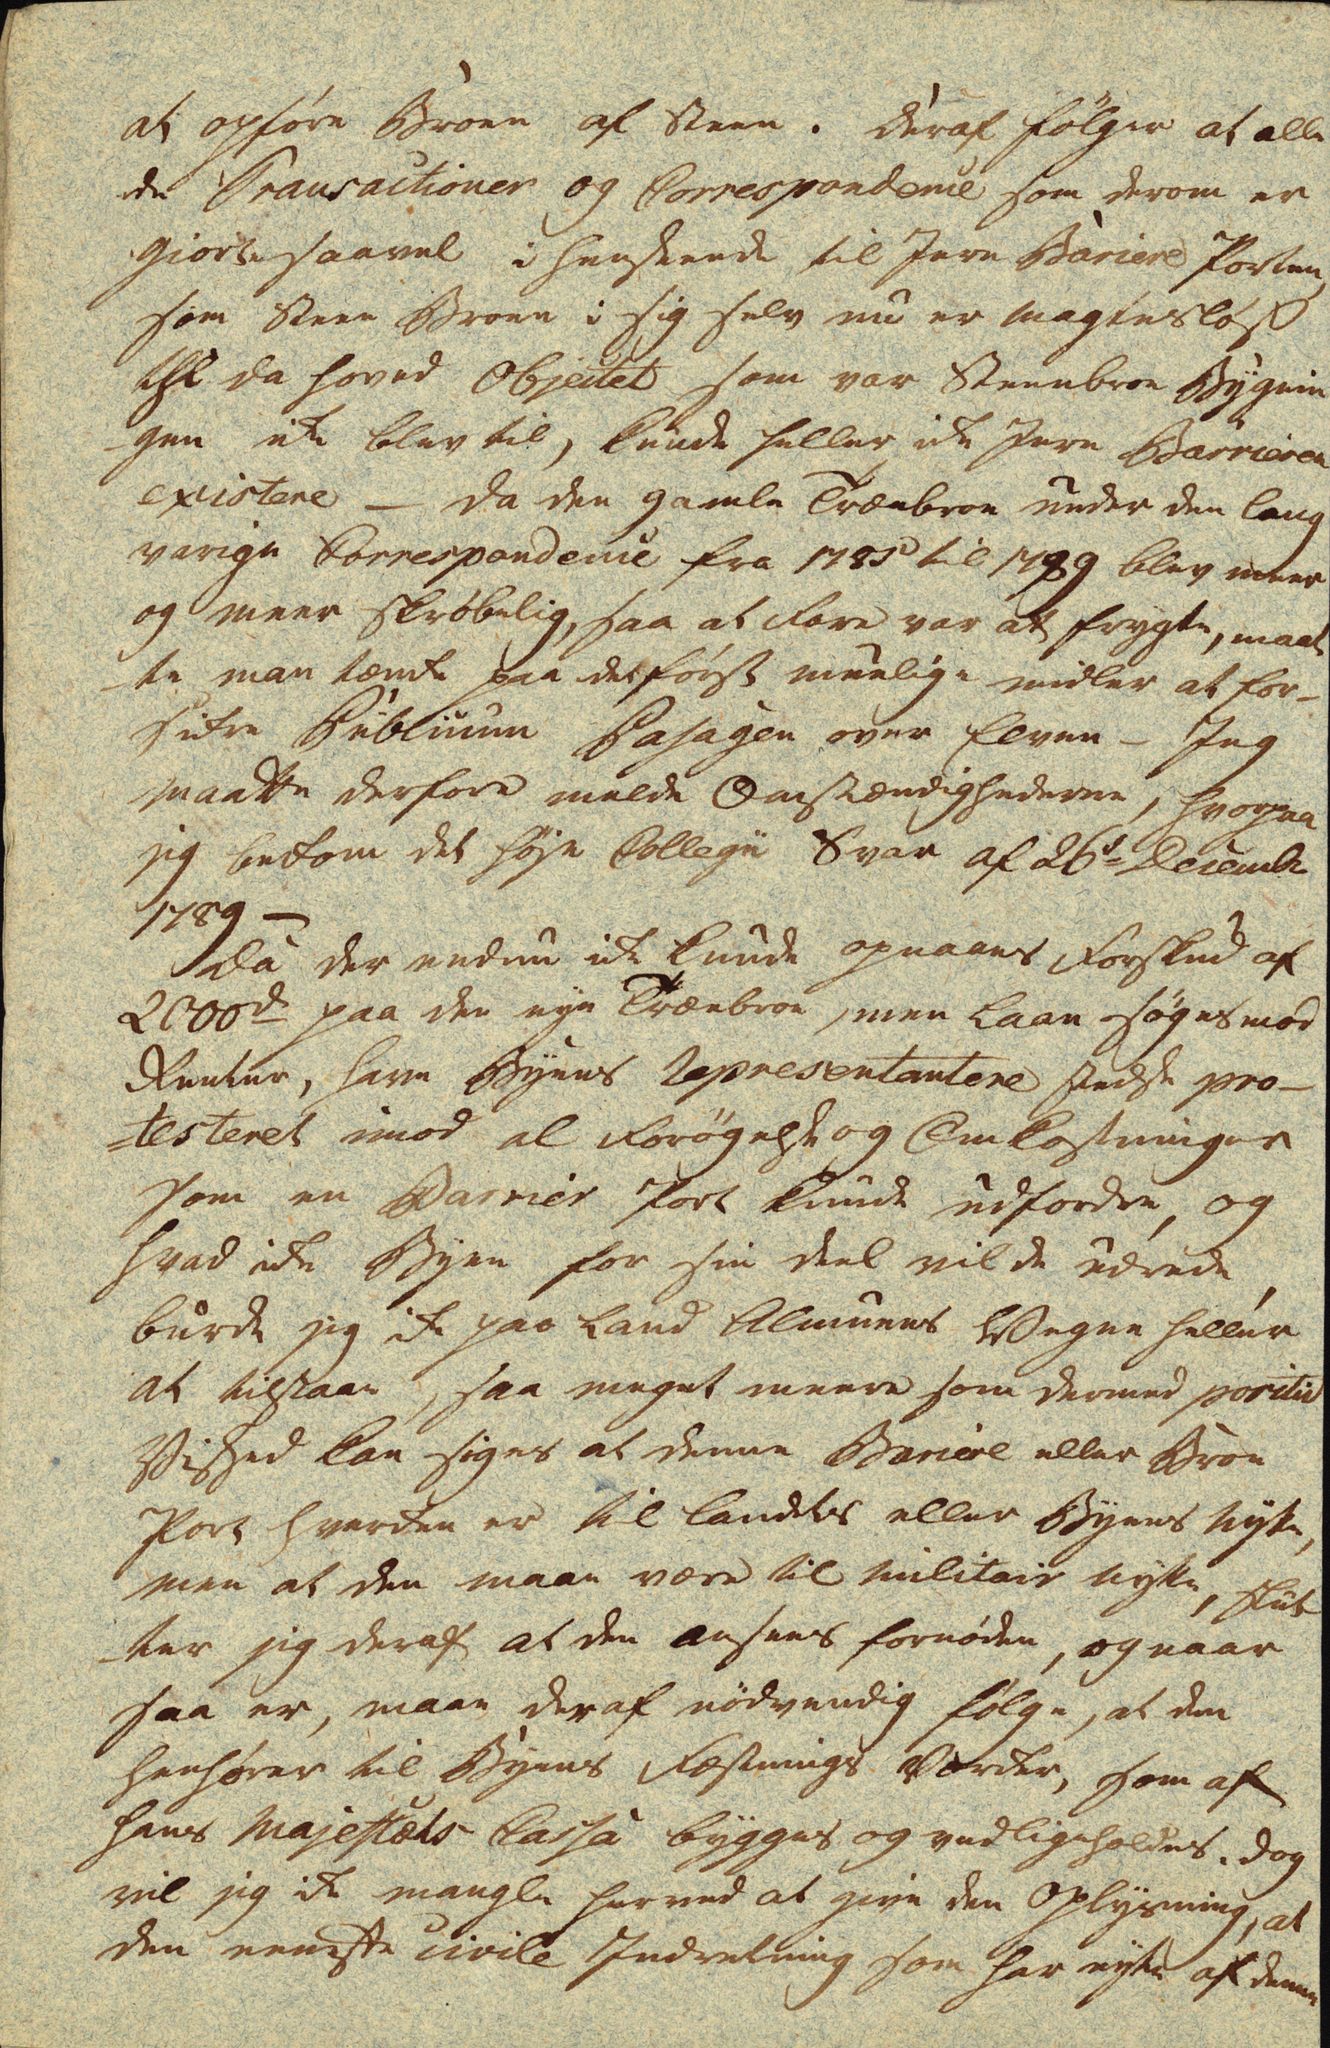 at opføre Broen af Steen. Deraf følger at alle
de Transactioner og Correspondence som derom er
giort saavel i henseende til Jern Bariere Porten,
som Steen Broen i sig selv nu er magtesløs
thi da hoved Objectet som var Steenbroe Bygnin
gen ikke blev til, kunde heller ikke Jern Barrieren
existere — da den gamle Træebroe under den lang
varige Correspondence fra 1785 til 1789 blev meer
og meer skrøbelig, saa at Fare var at frygte, maat
te man tænke paa det først muelige midler at for-
sikre Publicum Pasagen over Elven — Jeg
maatte derfore melde Omstændighederne, hvorpaa
jeg bekom det høje Collegii Svar af 26de Decembr
1789 —
Da der endnu ikke kunde opnaaes Forskud af
2000d paa den nye Træebroe, men Laan søges mod
Renter, have Byens Representantere stedse pro-
testeret imod al Forøgelse og Omkostninger
som en Barrier Port kunde udfordre, og
hvad ikke Byen for sin deel vilde udrede,
burde jeg ikke paa Land Almuens Vegne heller
at tilstaae, saa meget meere som dermed positiv
Vished kan siges at denne Bariere eller Broe
Port hverken er til Landets eller Byens Nytte,
men at den maae være til Militair Nytte, slut
ter jeg deraf at den ansees fornøden, og naar
saa er, maae deraf nødvendig følge, at den
henhører til Byens Fæstnings Værker, som af
Hans Majestæts Cassa bygges og vedligeholdes. Dog
vil jeg ikke mangle herved at give den Oplysning, at
den eeneste civile Indretning som har nytte af denne